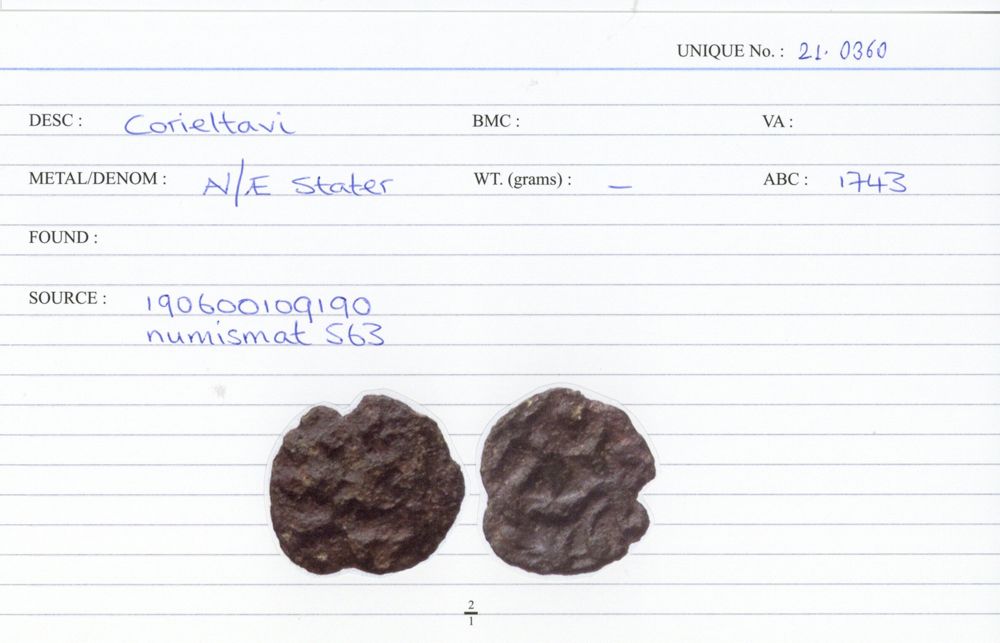 UNIQUE No. : 21. 0360
DESC : Corieltavi BMC : VA :
METAL/DENOM : N/Æ Stater WT. (grams) : – ABC : 1743
FOUND :
SOURCE : 190600109190
numismat 563
2
1